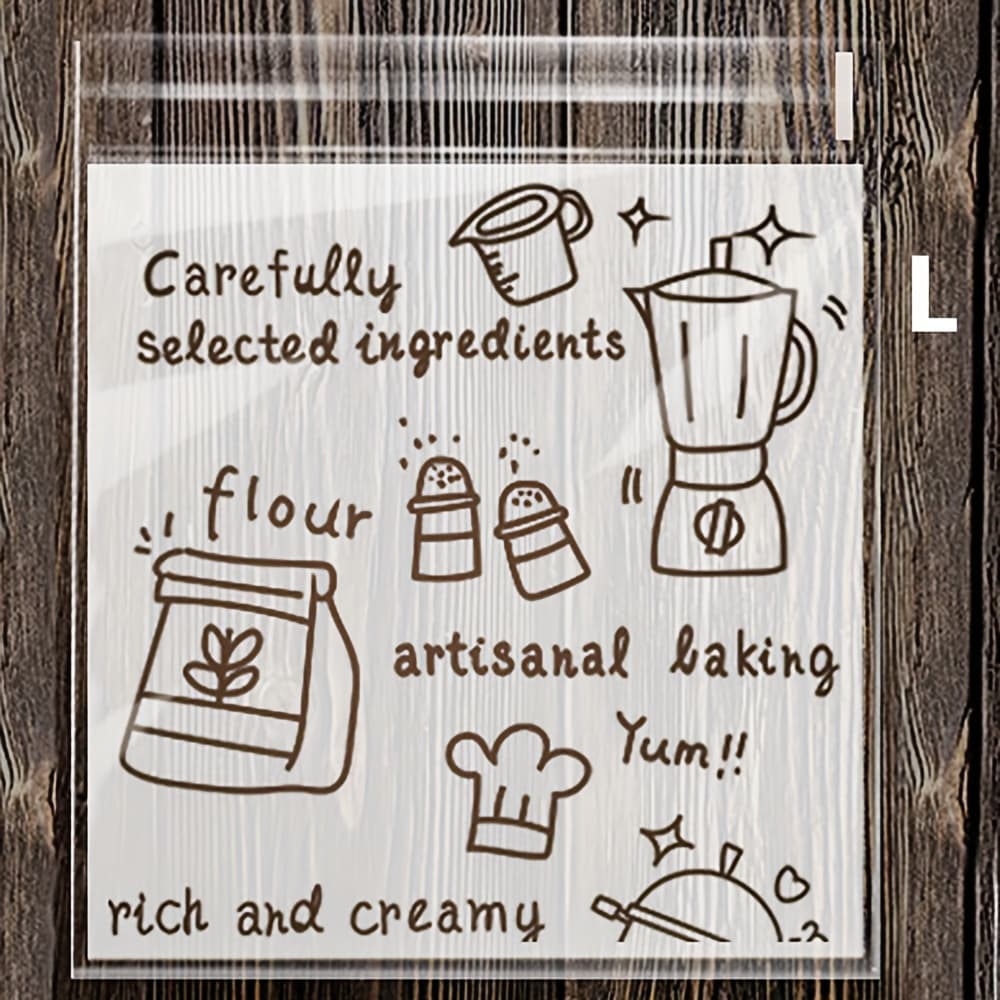 Carefully
selected ingredients
L
flour
artisanal baking
Yum!!
rich and creamy